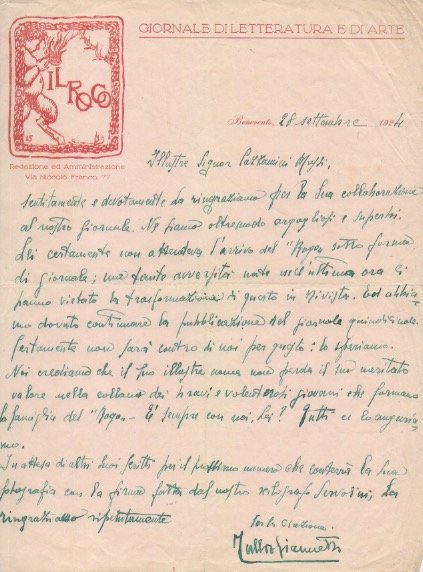 IL ROGO
GIORNALE DI LETTERATURA E DI ARTE
Redazione ed Amministrazione
Via Niccolò Franco, 77
Benevento, 28 settembre 1924
Illustre Signor
sentitamente e devotamente La ringraziamo per la Sua collaborazione
al nostro giornale. Ne siamo oltremodo orgogliosi e superbi.
Lei certamente non attendeva l'arrivo del "Rogo" sotto forma
di giornale; ma tante avversità nate nell'ultima ora ci
hanno vietato la trasformazione di questo in Rivista. Ed abbia-
mo dovuto continuare la pubblicazione del giornale quindicinale.
Certamente non sarà contro di noi per questo: lo speriamo.
Noi crediamo che il Suo illustre nome non perda il suo meritato
valore nella collana dei bravi e volenterosi giovani che formano
la famiglia del "Rogo" - È sempre con noi, Lei? Tutti ce lo auguria-
mo.
In attesa di altri Suoi scritti per il prossimo numero che conterrà la Sua
fotografia con la firma fatta dal nostro xilografo Servolini, La
ringraziamo ripetutamente